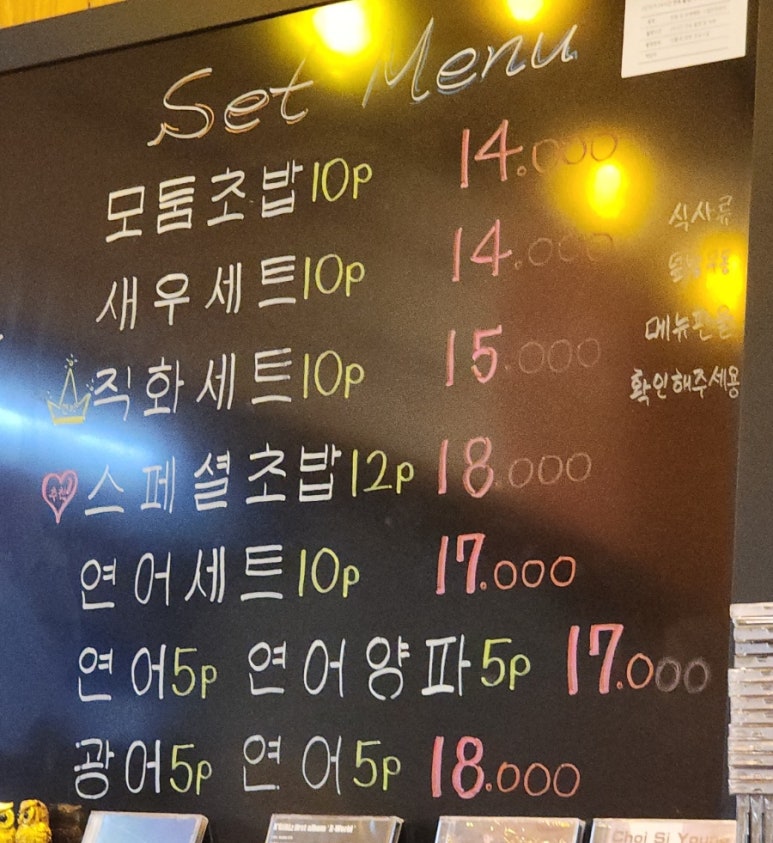 Set Menu
모둠초밥10p 14.000
새우세트10p 14.000
직화세트10p 15.000
스페셜초밥12p 18.000
연어세트10p 17.000
연어5p 연어양파5p 17.000
광어5p 연어5p 18.000
식사류
메뉴판을
확인해주세용
Choi Si Young